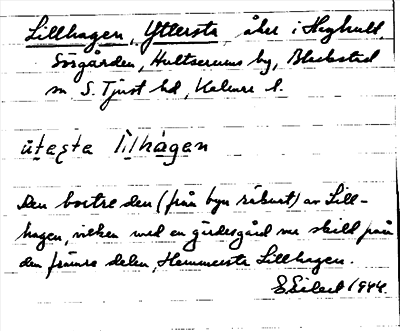 Lillhagen, Yttersta, åker i Höghult,
Sörgården, Hultserums by, Blackstad
sn S. Tjust hd, Kalmar l.
ùtęşta lı̀lhágen
Den bortre den (från byn räknat) av Lill-
hagen, vilken med en gärdesgård var skild från
den främre delen, Hemmersta Lillhagen.
1944.